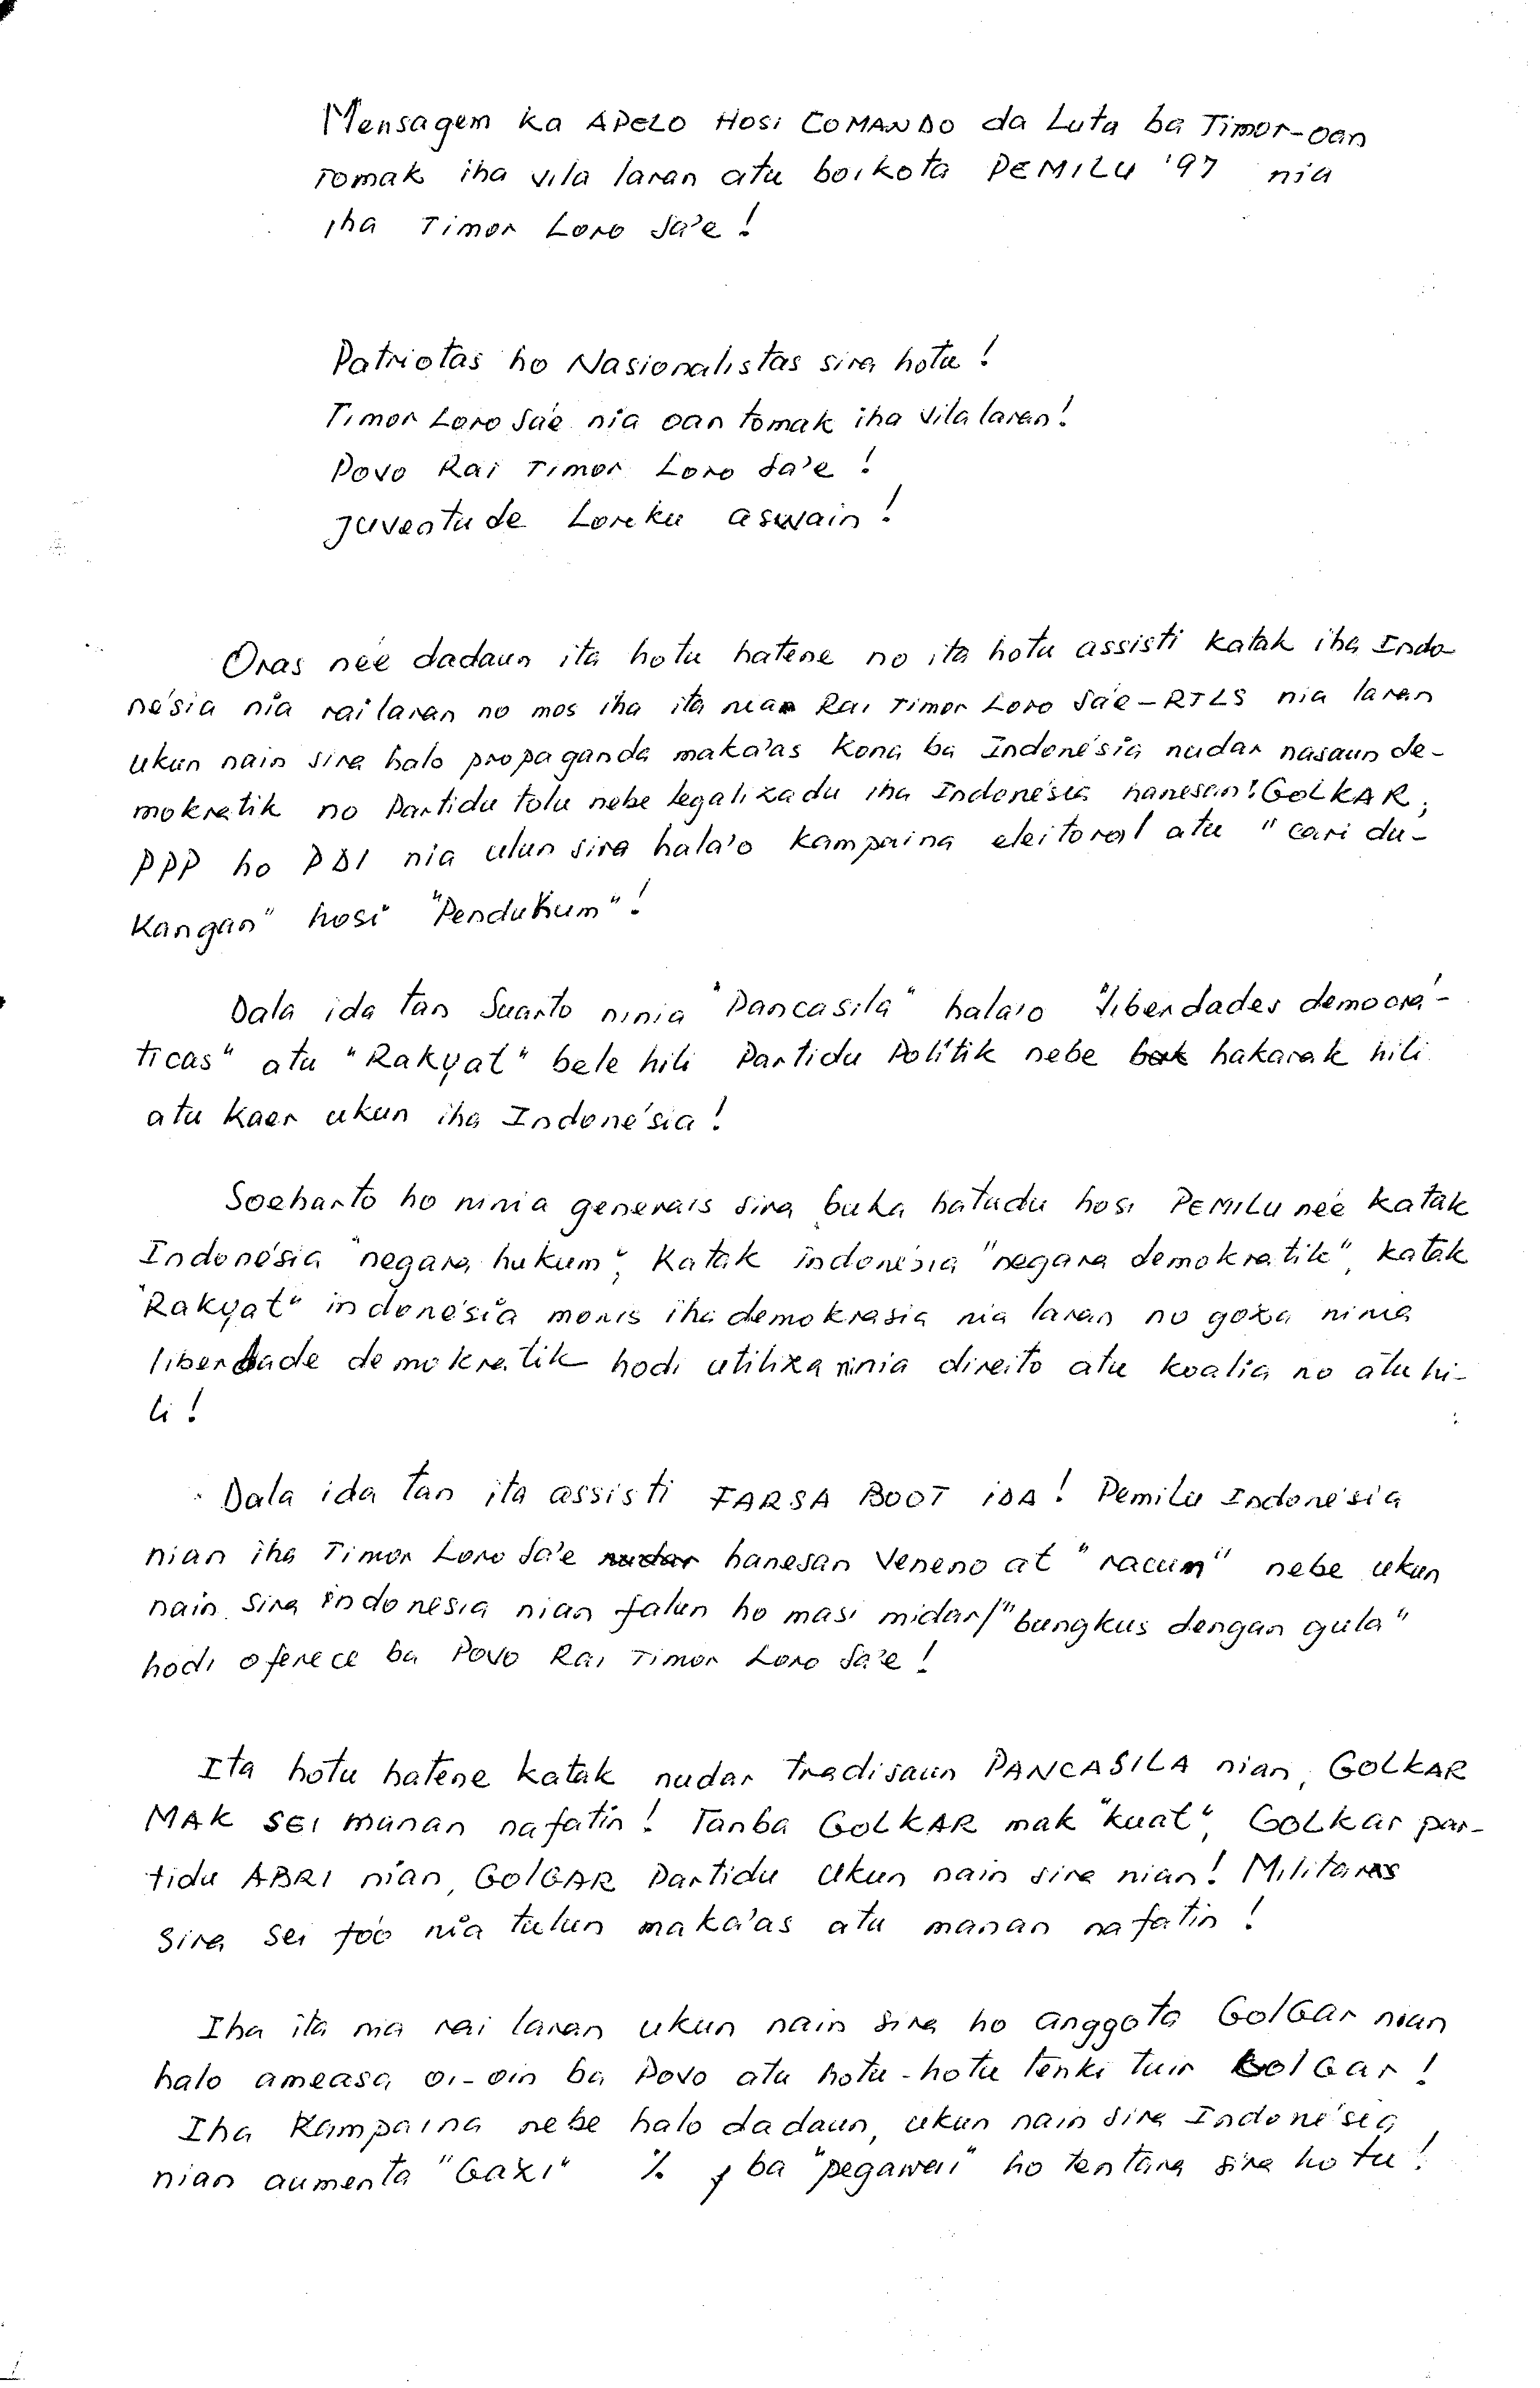 Mensagem ka APELO Hosi COMANDO da Luta ba Timor-oan
Tomak iha vila laran atu boikota PEMILU '97 nia
iha Timor Loro Sa'e!
Patriotas ho Nasionalistas sira hotu!
Timor Loro Sa'e nia oan tomak iha vila laran!
Povo Rai Timor Loro Sa'e!
Juventude Loriku aswain!
Oras neé dadaun ita hotu hatene no ita hotu assisti katak iha Indo
nésia nia rai laran no mos iha ita nian Rai Timor Loro Sa'e-RTLS nia laran
ukun nain sira halo propaganda maka'as kona ba Indonésia nudar nasaun de-
mokratik no Partidu tolu nebe legalizadu iha Indonésia hanesan: GOLKAR,
PPP ho PDI nia ulun sira hala'o kampaina eleitoral atu "cari du-
kangan" hosi "Pendukum"!
Dala ida tan Suarto ninia "Pancasila" hala'o "liberdades democrá-
ticas" atu "Rakyat" bele hili Partidu Polítik nebe hakarak hili
atu kaer ukun iha Indonésia!
Soeharto ho ninia generais sira buka hatudu hosi PEMILU neé katak
Indonésia "negara hukum", katak indonésia "negara demokratik", katak
"Rakyat" indonésia moris iha demokrasia nia laran no goza ninia
liberdade demokratik hodi utiliza ninia direito atu koalia no atu hi-
li!
Dala ida tan ita assisti FARSA BOOT IDA! Pemilu Indonésia
nian iha Timor Loro Sa'e nudar hanesan Veneno at "racum" nebe ukun
nain sira indonesia nian falun ho masi midar/"bungkus dengan gula"
hodi oferece ba Povo Rai Timor Loro Sa'e!
Ita hotu hatene katak nudar tradisaun PANCASILA nian, GOLKAR
MAK SEI manan nafatin! Tanba GOLKAR mak "kuat", GOLKAR par-
tidu ABRI nian, GOLGAR Partidu Ukun nain sira nian! Militares
sira sei fóo nia tulun maka'as atu manan nafatin!
Iha ita nia rai laran ukun nain sira ho anggota GolGar nian
halo ameasa oi-oin ba Povo atu hotu-hotu tenki tuir GolGar!
Iha Kampaina nebe halo dadaun, ukun nain sira Indonésia
nian aumenta "Gaxi" % ba "pegawai" ho tentara sira hotu!